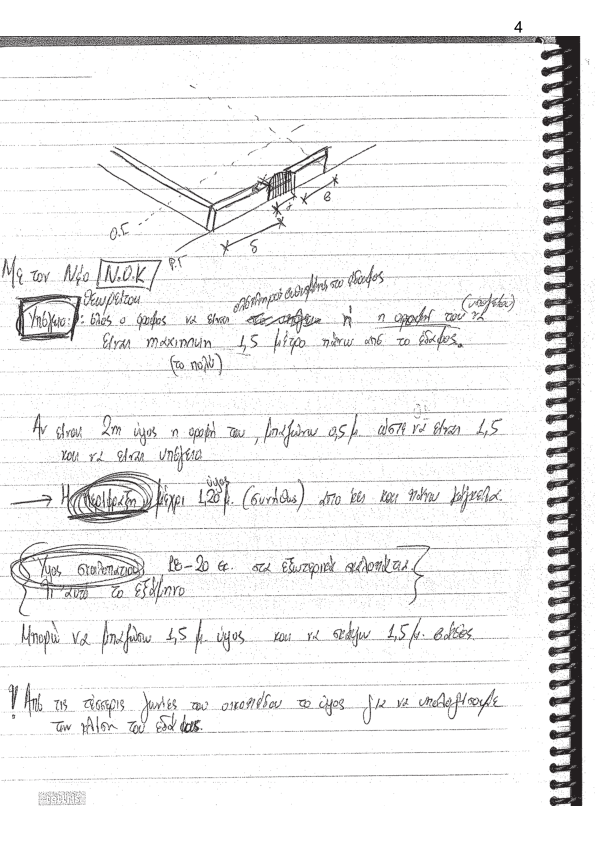 4
Ο.Γ
Ρ.Γ
δ
γ
β
Με τον Νέο Ν.Ο.Κ
θεωρείται ολόκληρος στο έδαφος
Υπόγειο: όλος ο όροφος να είναι ή η οροφή του να (υπογείου)
είναι maximum 1,5 μέτρο πάνω από το έδαφος.
(το πολύ)
Αν είναι 2m ύψος η οροφή του, μπαζώνω 0,5 μ. ώστε να είναι 1,5
και να είναι υπόγειο
→ Η περίφραξη μέχρι 1,20 μ. ύψος (συνήθως) από κει και πάνω κάγκελα.
Ύψος σκαλοπατιού 18-20 εκ. στα εξωτερικά σκαλοπάτια
γι αυτό το εξάμηνο
Μπορώ να μπαζώσω 1,5 μ. ύψος και να σκάψω 1,5 μ. βάθος.
Από τις τέσσερις γωνίες του οικοπέδου το ύψος για να υπολογίσουμε
την κλίση του εδάφους.